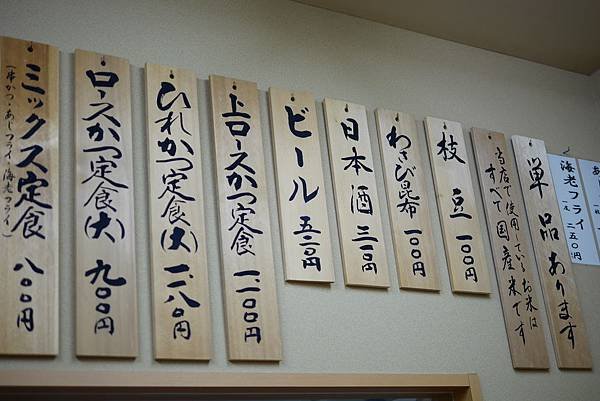 あ
海老フライ
一尾 二五〇円
単品あります
当店で使用しているお米は
すべて国産米です
枝豆 一〇〇円
わさび昆布 一〇〇円
日本酒 三一〇円
ビール 五二〇円
上ロースかつ定食 一、一〇〇円
ひれかつ定食(大) 一、一八〇円
ロースかつ定食(大) 九〇〇円
ミックス定食 八〇〇円
(串かつ・あじフライ・海老フライ)